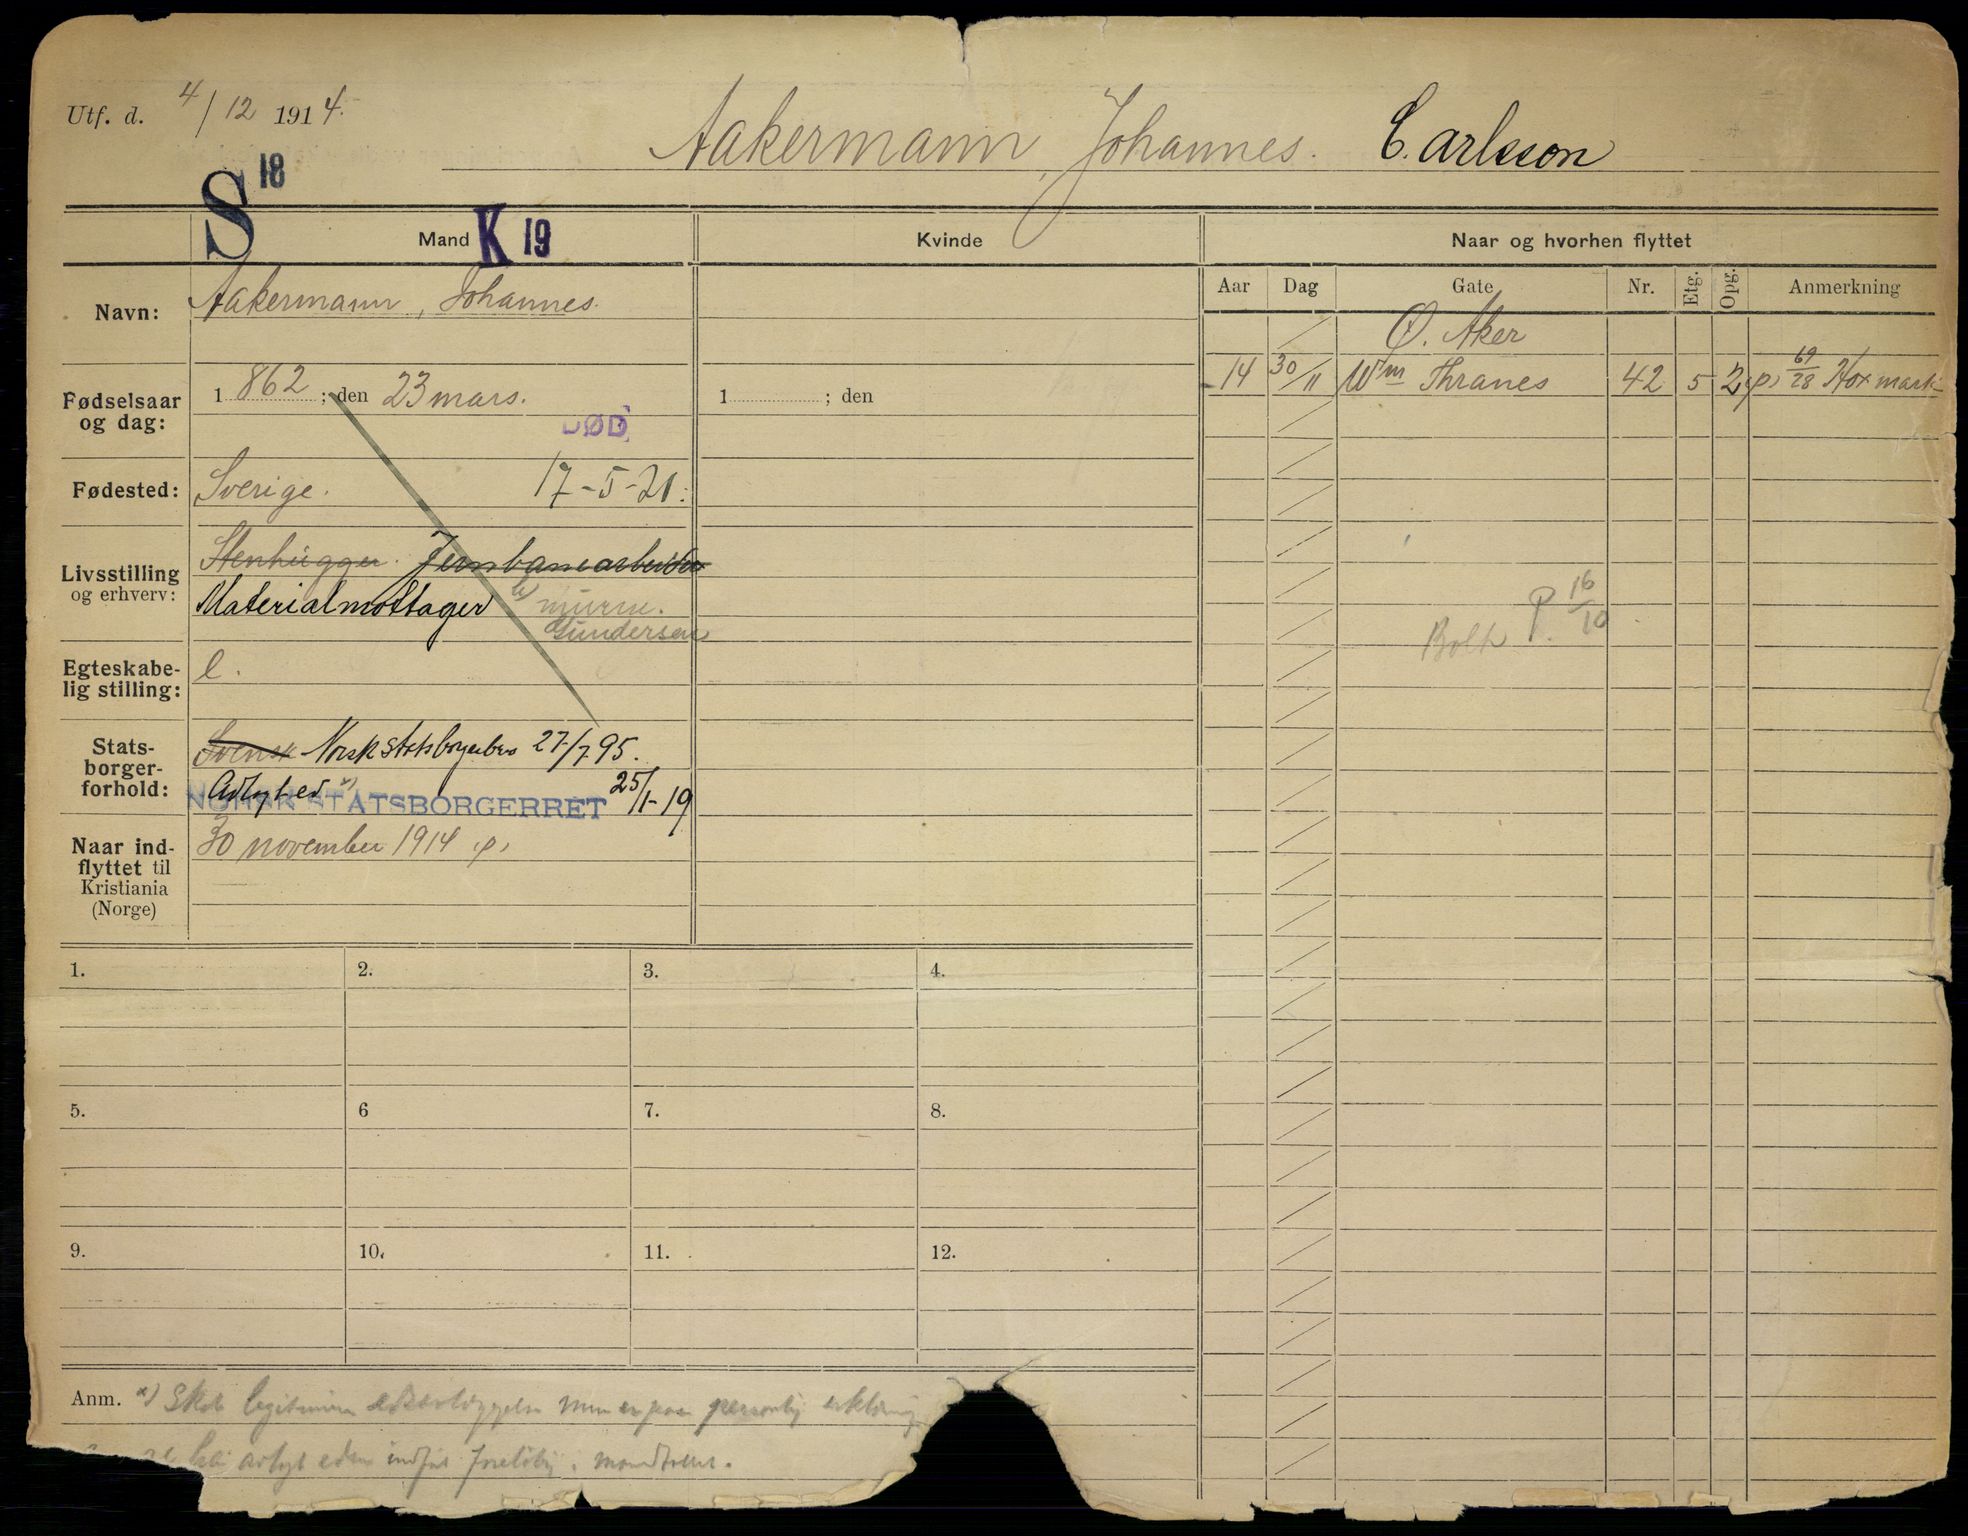 Utf. d. 4/12 1914.
Aakermann, Johannes. C. Carlsson
S 18
Mand K 19
Kvinde
Naar og hvorhen flyttet
Navn: Aakermann, Johannes.
Aar Dag Gate Nr. Etg. Opg. Anmerkning
Ø. Aker
14 30/11 Wm Thranes 42 5 2 p) 69/28
Fødselsaar og dag: 1862; den 23 mars.
1 ; den
DØD
Fødested: Sverige. 17-5-21.
Livsstilling og erhverv: Stenhugger. Jernbanearbeider
Materialmottager murm.
Gundersen
P. 16/10
Egteskabe-
lig stilling: e.
Stats-
borger-
forhold: Svensk Norsk statsborgerbrev 27/7 95.
Avlagt ed x) 25/1-19
NORSK STATSBORGERRET
Naar ind-
flyttet til
Kristiania
(Norge)
30 november 1914 p)
1. 2. 3. 4.
5. 6 7. 8.
9. 10. 11. 12.
Anm. x) Skal personlig erklæring
ha avlagt eden indført foreløbig i mandtallet.